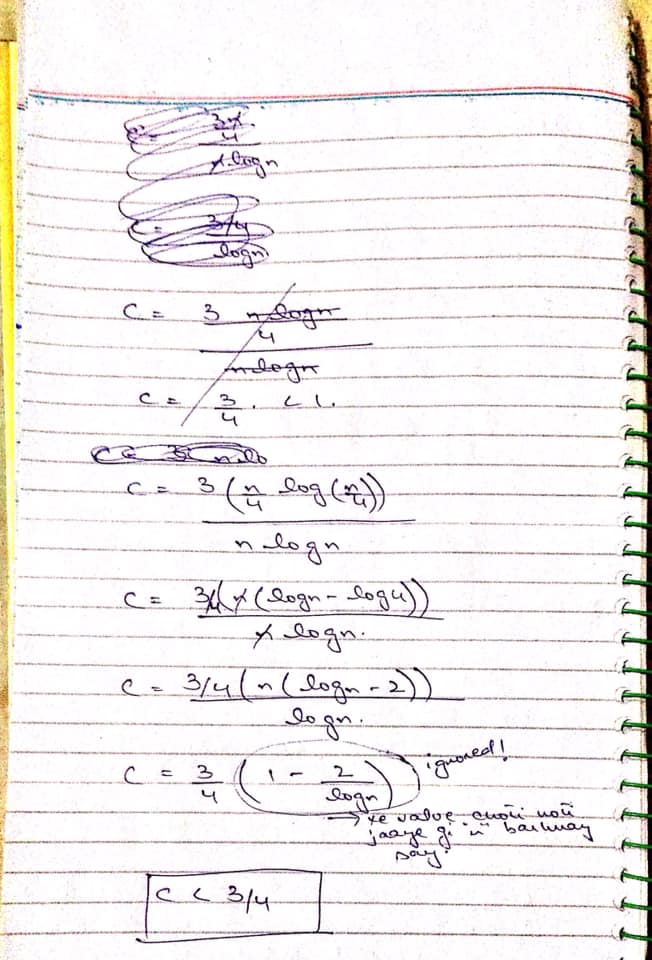 3n/4
n.logn
C = 3/4
logn
C = 3 n logn / 4
n logn
C = 3/4 . < 1.
C = 3 n lo
C = 3 (n/4 log(n/4))
n logn
C = 3/4(n(logn - log4))
n logn.
C = 3/4(n(logn - 2))
logn.
C = 3/4 (1 - 2/logn) ignored!
→ ye value choti hoti
jaaye gi "n" barhnay
say.
C < 3/4